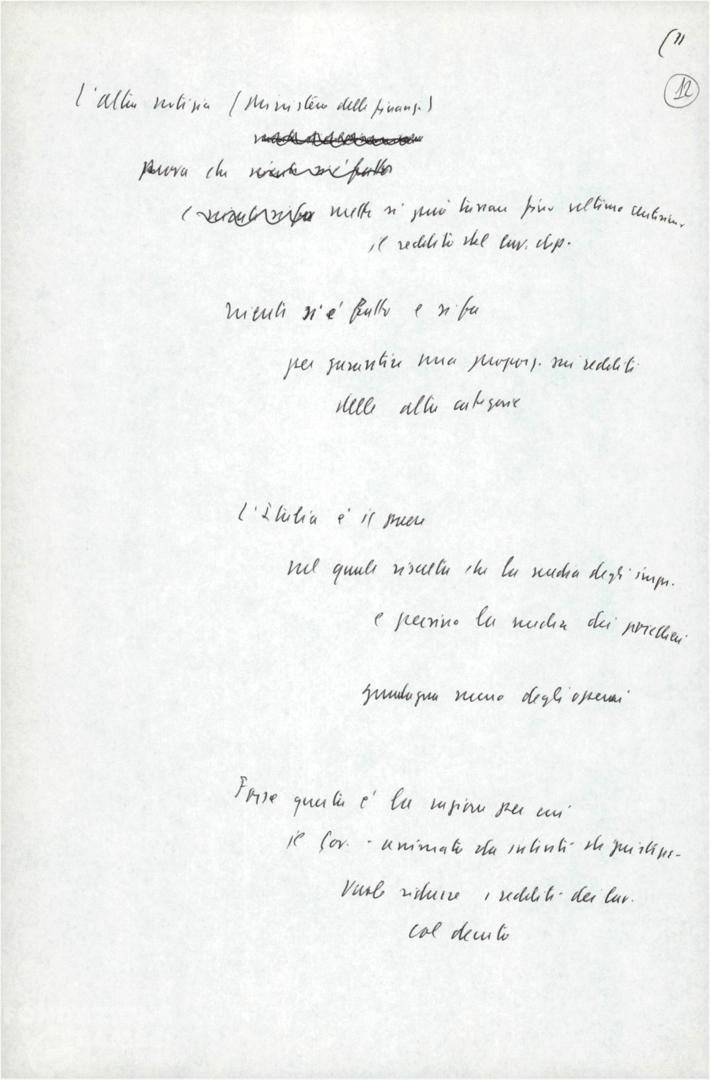 12
L'altra notizia (Ministero delle finanze)
prova che niente si è fatto
e niente si fa mentre si può tassare fino ultimo centesimo
il reddito del lav. dip.
niente si è fatto e si fa
per garantire una proporz. sui redditi
delle altre categorie
L'Italia è il paese
nel quale risulta che la media degli impr.
e persino la media dei gioiellieri
guadagna meno degli operai
Forse questa è la ragione per cui
il Gov. - animato da intenti di giustizia -
vuole ridurre i redditi dei lav.
col decreto